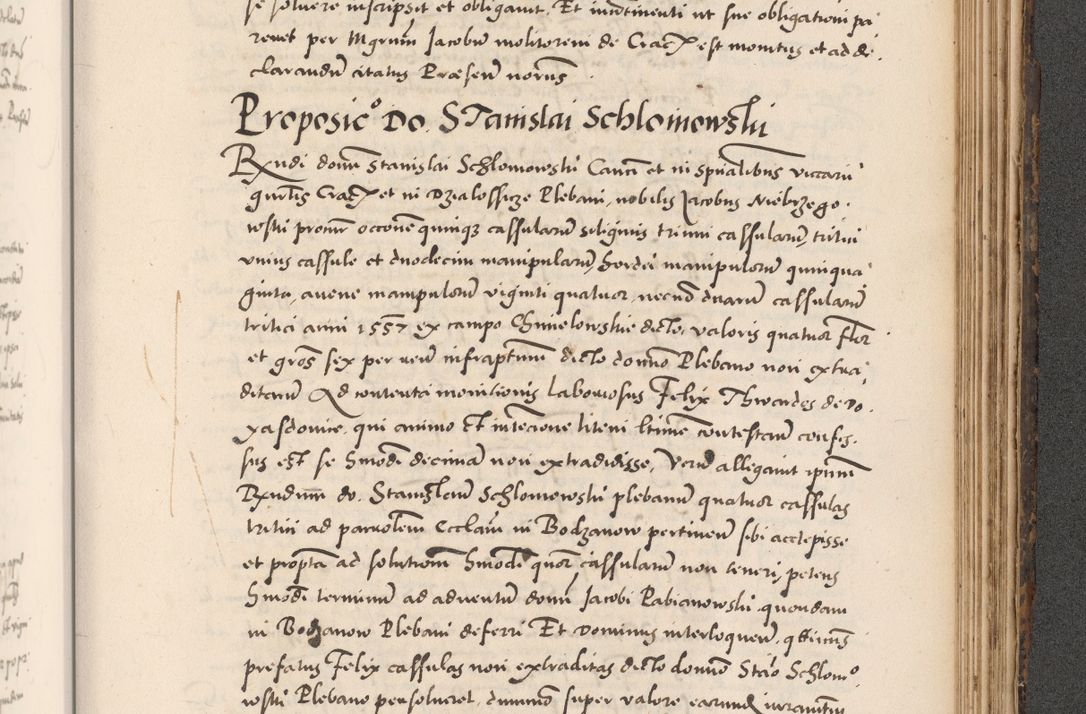 se solvere inscripsit et obligavit. Et incontinenti ut sue obligationi pa
reret per Mgrum Jacobum molitorem de Crac est monitus et ad de
clarandum citatus Præsen noruns
Proposicº Do. Stanislai Schlomowski
Rndi domi Stanislai Schlomowski Canci et in spualibus vicarii
gnrlis Crac et in Dzialossicze Plebani, nobilis Jacobus
wski procur occone quinqz cassularum siliginis trium cassularum, tritici
unius cassule et duodecim manipularum, hordei manipulorum quinqua
ginta, avene manipulorum viginti quatuor, necnō duarum cassularum
tritici anni 1557 ex campo Chmielowskie dicto, valoris quatuor flor
et gros sex per eum infraptum dicto domno Plebano non extra
ditarum Ad contenta monitionis laboriosus Felix Thwardes de Do
qui animo Et intencione litem ltime contestan confes
sus est se hmodi decimam non extradidisse, Verum allegavit ipsum
Rndum do. Stanislaum Schlomowski plebanum quatuor cassulas
tritici ad parrolem Ecclam in Bodzanow pertinen sibi accepisse
et propta ad solutionem hmodi quor cassularum non teneri, petens
hmodi terminum ad adventum domi Jacobi Pabianowski quondam
in Bodzanow Plebani deferri Et Dominus interloquen.
prefatus Felix cassulas non extraditas dicto domno Stāo Schlomo
wski Plebano persolveret, dummō super valore earund